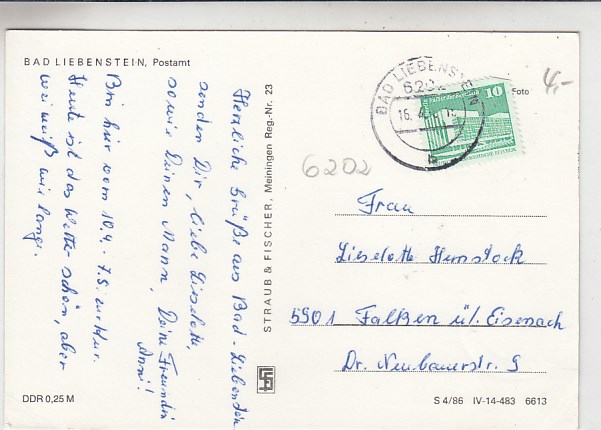 BAD LIEBENSTEIN, Postamt
Herzliche Grüße aus Bad-Liebenstein
senden Dir, liebe Lieselotte,
sowie Deinen Mann, Deine Freundin
Anni!
Bin hier vom 10.4. - 7.5. zur Kur.
Heute ist das Wetter schön, aber
wer weiß wie lange.
DDR 0,25 M
STRAUB & FISCHER, Meiningen Reg.-Nr. 23
BAD LIEBENSTEIN
6202
16. 4.
b
10
Foto
4,-
6202
Frau
Lieselotte Hunstock
5901 Falken ü/. Eisenach
Dr. Neubauerstr. 9
S 4/86 IV-14-483 6613